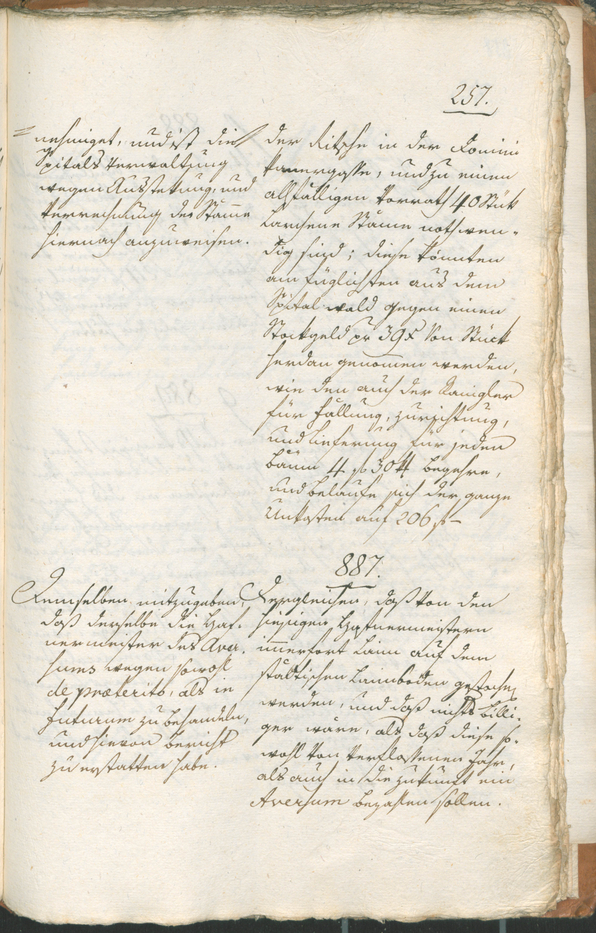 257.
= nehmiget, und ist die
Spitals Verwaltung
wegen Aussteckung, und
Verrechnung der Stämme
hiernach anzuweisen.
der Ritsche in der Domini
kanergasse, und zu einem
allfälligen Vorrath 40 Stück
Lärchene Stämme nothwen-
dig sind; diese könnten
am füglichsten aus dem
Spital wald gegen einen
Stockgeld pr 39x von Stück
herdan genommen werden,
wie den auch der
für Fällung, Zurichtung,
und Lieferung für jeden
Baum 4 f 30 x begehre,
und belaufe sich der ganze
Unkosten auf 206 f –
887.
Demselben mitzugeben,
daß derselbe die Haf-
nermeister des Aver-
sums wegen sowohl
de praeterito, als in
futurum zu behandeln,
und hievon bericht
zu erstatten habe.
Dergleichen, daß von den
hiesigen Hafnermeistern
immerfort Laim auf dem
städtischen Laimboden gestochen
werden, und daß nichts billi-
ger wäre, als daß diese so-
wohl von verflossenen Jahr,
als auch in die zukunft ein
Aversum bezahlen sollen.